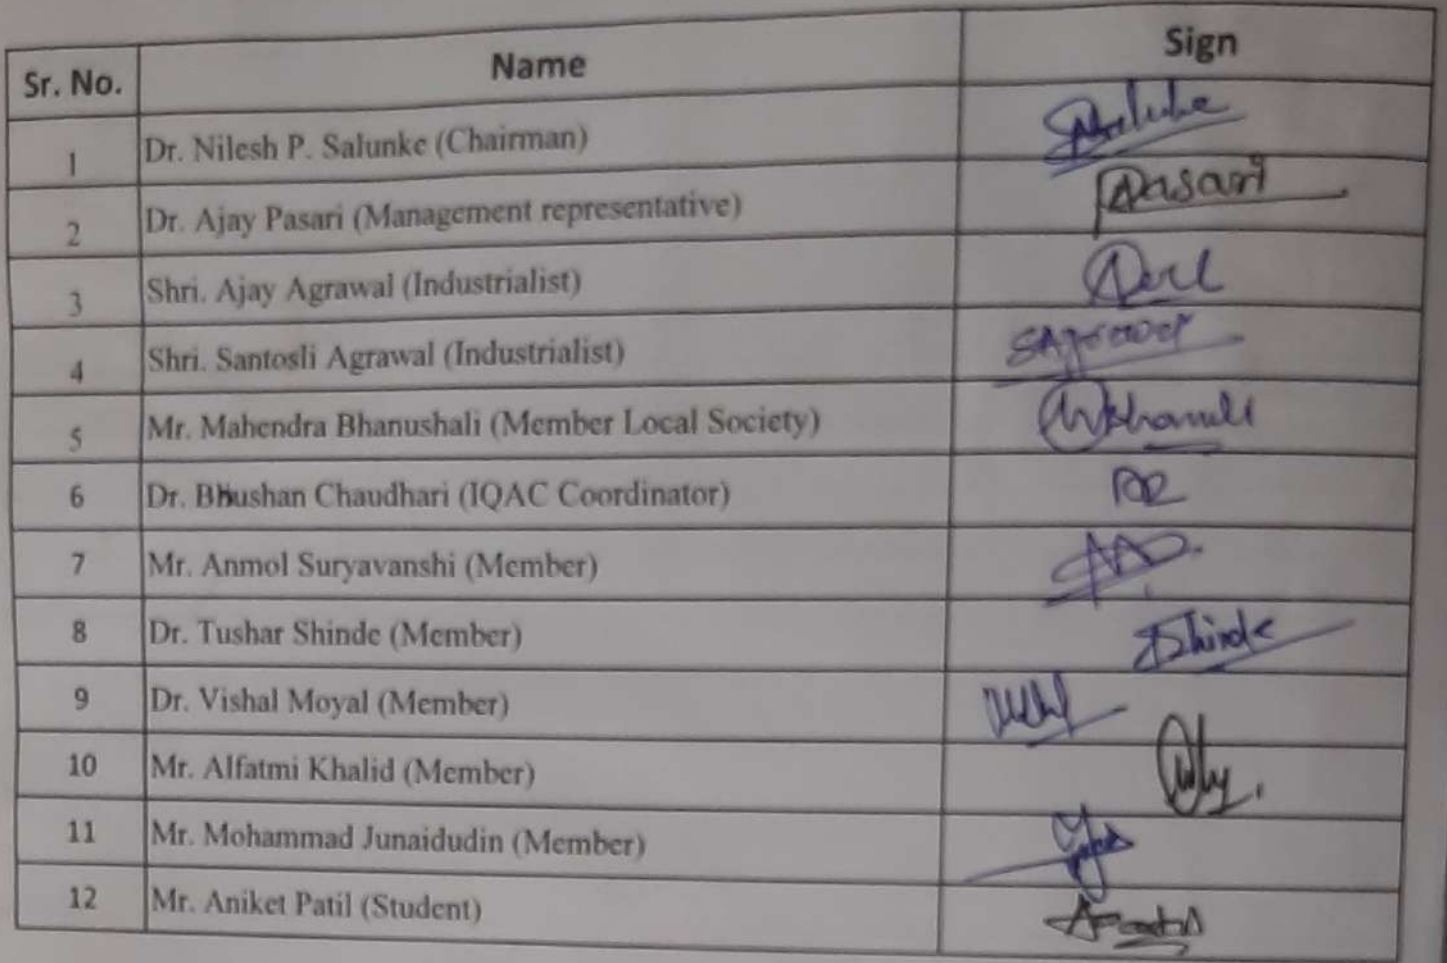 Sr. No. Name Sign
1 Dr. Nilesh P. Salunke (Chairman) Salunke
2 Dr. Ajay Pasari (Management representative) Pasari
3 Shri. Ajay Agrawal (Industrialist)
4 Shri. Santosli Agrawal (Industrialist) SAgrawal
5 Mr. Mahendra Bhanushali (Member Local Society)
6 Dr. Bhushan Chaudhari (IQAC Coordinator)
7 Mr. Anmol Suryavanshi (Member)
8 Dr. Tushar Shinde (Member) Shinde
9 Dr. Vishal Moyal (Member)
10 Mr. Alfatmi Khalid (Member)
11 Mr. Mohammad Junaidudin (Member)
12 Mr. Aniket Patil (Student) APatil